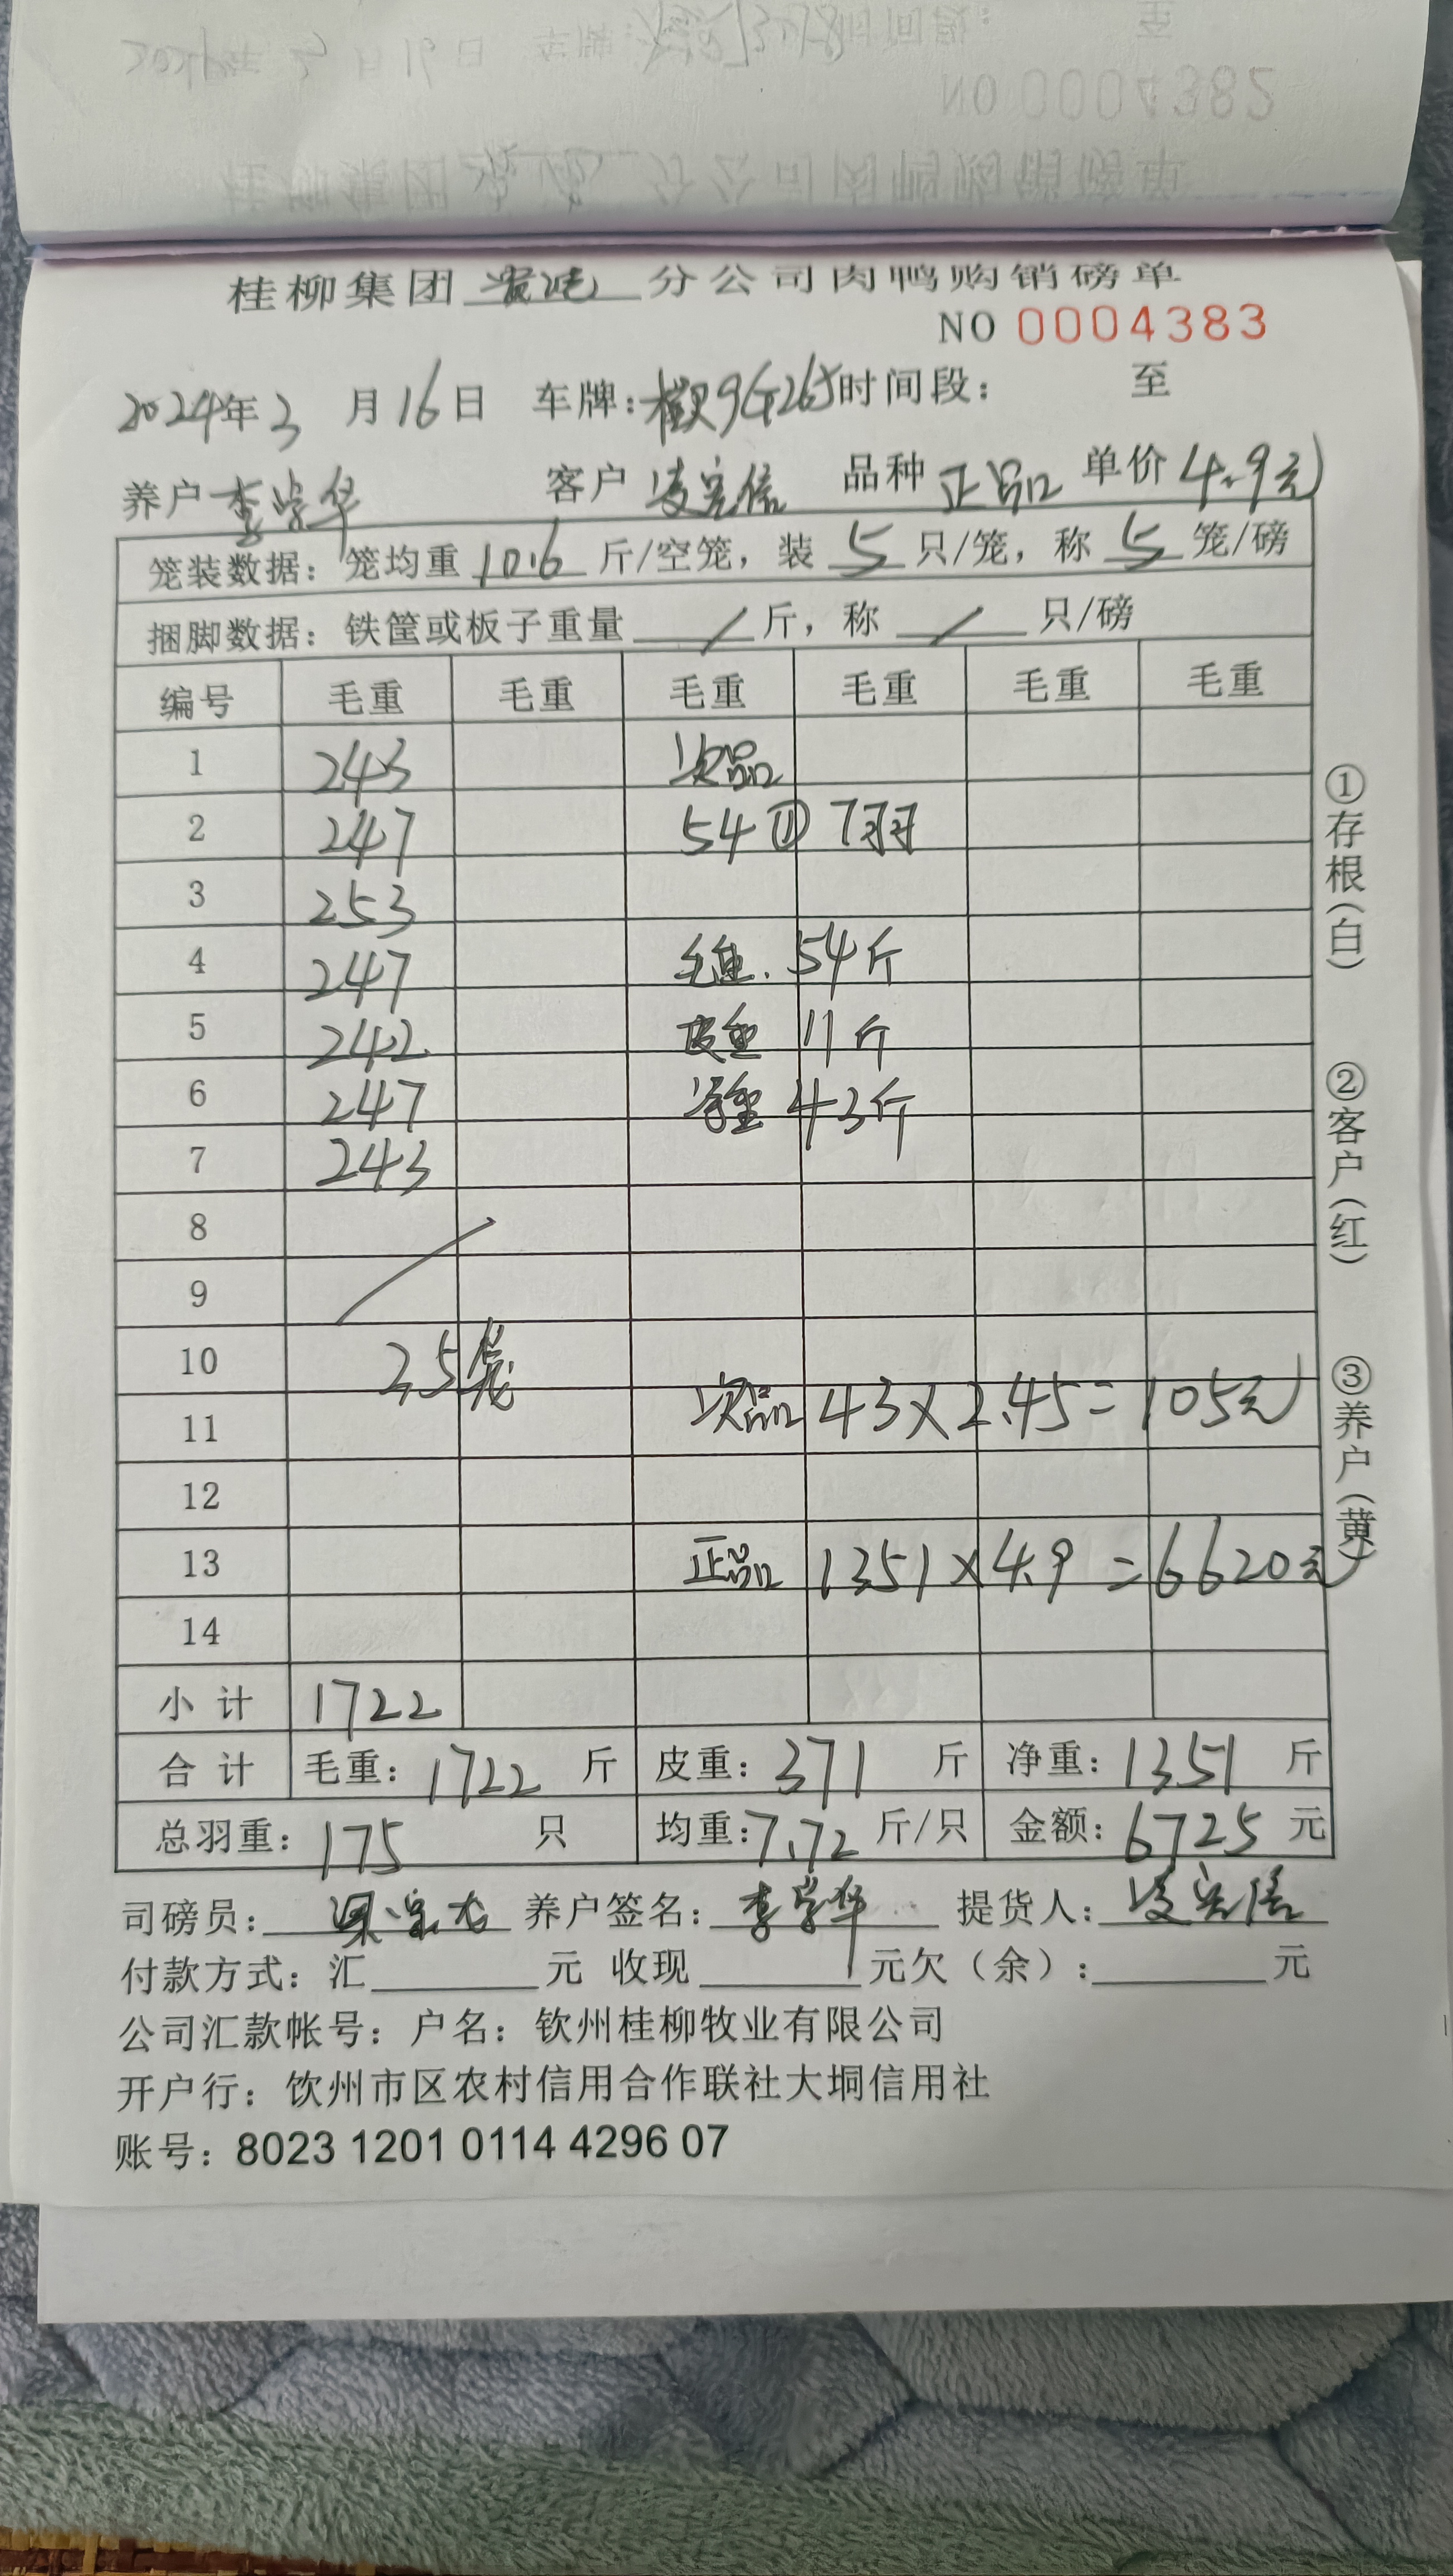 NO 0004382
桂柳集团 分公司肉鸭购销磅单
NO 0004383
2024年3月16日 车牌: 时间段: 至
养户 李学华 客户 凌宪信 品种 正品 单价 4.9元
笼装数据: 笼均重 10.6 斤/空笼, 装 5 只/笼, 称 5 笼/磅
捆脚数据: 铁筐或板子重量 / 斤, 称 / 只/磅
编号 毛重 毛重 毛重 毛重 毛重 毛重
1 243 次品
2 247 54① 7羽
3 253
4 247 毛重. 54斤
5 242 皮重 11斤
6 247 净重 43斤
7 243
8
9
10 25笼
11 次品 43×2.45=105元
12
13 正品 1351×4.9=6620元
14
小计 1722
合计 毛重: 1722 斤 皮重: 371 斤 净重: 1351 斤
总羽重: 175 只 均重: 7.72 斤/只 金额: 6725 元
司磅员: 养户签名: 李学华 提货人: 凌宪信
付款方式: 汇 元 收现 元欠(余): 元
公司汇款帐号: 户名: 钦州桂柳牧业有限公司
开户行: 饮州市区农村信用合作联社大垌信用社
账号: 8023 1201 0114 4296 07
①存根(白)
②客户(红)
③养户(黄)